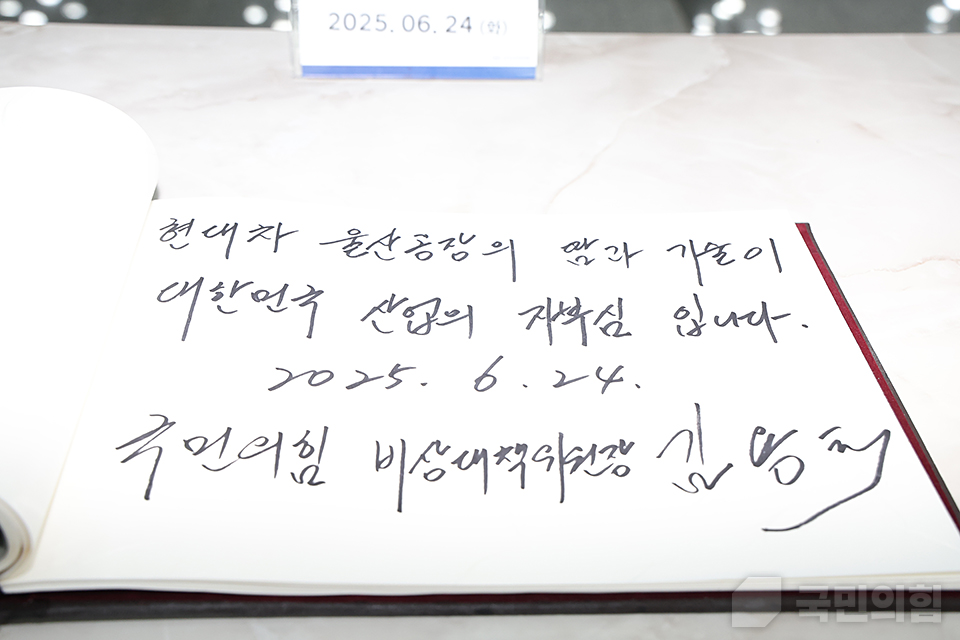 2025. 06. 24 (화)
현대차 울산공장의 땀과 기술이
대한민국 산업의 자부심 입니다.
2025. 6. 24.
국민의힘 비상대책위원장 김용태
국민의힘